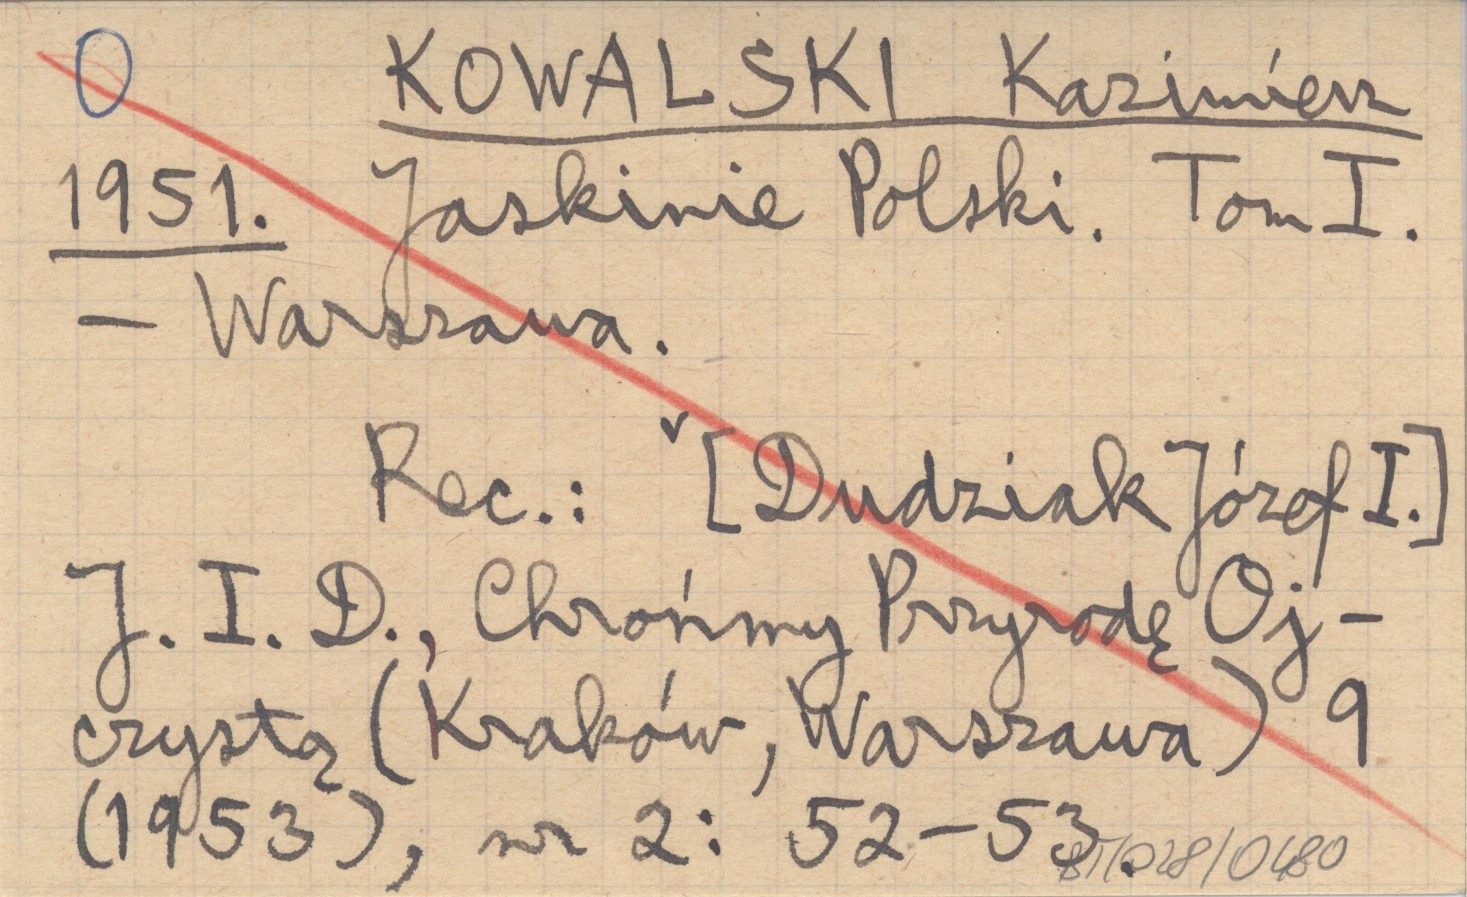 0 KOWALSKI Kazimierz
1951. Jaskinie Polski. Tom I.
– Warszawa.
Rec.: ˅ [Dudziak Józef I.]
J. I. D., Chrońmy Przyrodę Oj-
czystą (Kraków, Warszawa) 9
(1953), nr 2: 52–53.
BT/028/0480